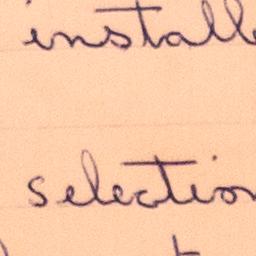 install
selection